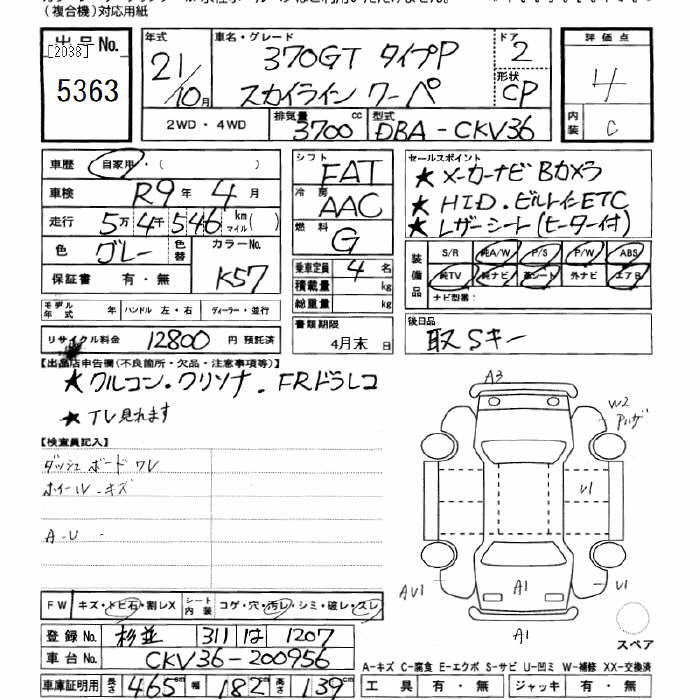 （複合機）対応用紙
出品No.
[2038]
5363
年式
21/10月
車名・グレード
370GT タイプP
スカイライン クーペ
ドア
2
形状
CP
評価点
4
内装
C
2WD・4WD
排気量
3700cc
型式
DBA-CKV36
車歴
自家用・(　　)
車検
R9年 4月
走行
5万4千546km マイル(　)
色
グレー
色替
カラーNo.
K57
保証書 有・無
モデル年式 年 ハンドル 左・右 ディーラー・並行
リサイクル料金 12800円 預託済
シフト
FAT
冷房
AAC
燃料
G
乗車定員 4名
積載量 kg
総重量 kg
書類期限
4月末日
セールスポイント
★メーカーナビ Bカメラ
★HID・ビルトインETC
★レザーシート(ヒーター付)
装備品
S/R 純A/W P/S P/W ABS
純TV 純ナビ 革シート 外ナビ エアB
ナビ型番：
後日品
取 Sキー
【出品店申告欄(不良箇所・欠品・注意事項等)】
★クルコン・クリソナ・FRドラレコ
★TV見れます
【検査員記入】
ダッシュボードワレ
ホイール・キズ
A・U
A3
W2
Pハゲ
U1
AU1
A1
U1
A1
スペア
FW キズ・トビ石・割レX
シート内装 コゲ・穴・汚レ・シミ・破レ・スレ
登録No. 杉並 311 は 1207
車台No. CKV36-200956
車庫証明用 長さ 465cm 幅 182cm 高さ 139cm
A-キズ C-腐食 E-エクボ S-サビ U-凹ミ W-補修 XX-交換済
工具 有・無 ジャッキ 有・無